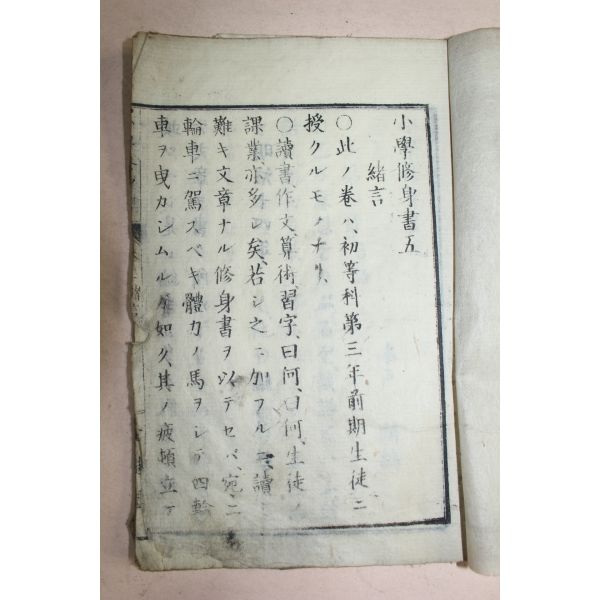 小學修身書五
緒言
〇此ノ卷ハ、初等科第三年前期生徒ニ
授クルモノナリ、
〇讀書、作文、算術、習字、曰何、曰何、生徒ノ
課業、亦多シ矣、若シ之ニ加フルニ、讀
難キ文章ナル修身書ヲ以テセバ、宛ニ
輪車ニ駕スベキ體力ノ馬ヲシテ四輪
車ヲ曳カシムルガ如久、其ノ疲頓立テ